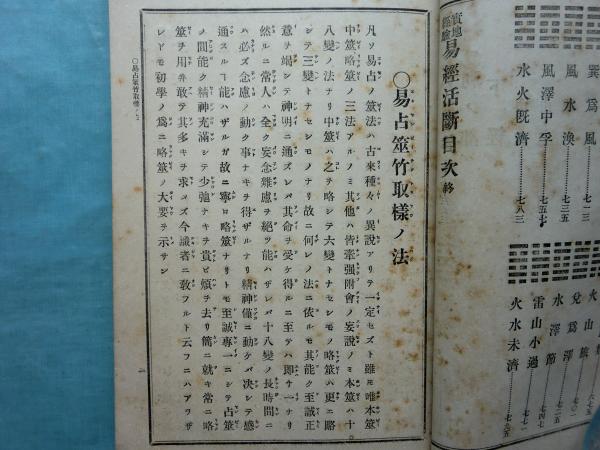 實地經驗 易經活斷目次 終
巽爲風……七二三
風水渙……七三五
風澤中孚……七五七
水火既濟……七八三
火山旅……六七五
兌爲澤……七〇二
水澤節……七四五
雷山小過……七七一
火水未濟……七九五
〇易占筮竹取樣ノ法
凡ソ易占ノ筮法ハ古來種々ノ異說アリテ一定セズト雖モ唯本筮
中筮略筮ノ三法アルノミ其他ハ皆牽强附會ノ妄說ノミ本筮ハ十
八變ノ法ナリ中筮ハ之ヲ略シテ六變トナセシモノ略筮ハ更ニ略
シテ三變トナセシモノナリ故ニ何レノ法ニ依ルモ其能ク至誠正
意ヲ竭シテ神明ニ通ズレバ其命ヲ受ケ得ルニ至テハ卽チ一ナリ
然ルニ常人ハ全ク妄念雜慮ヲ絕ツ能ハザレバ十八變ノ長時間ニ
ハ必ズ念慮ノ動ク事ナキヲ得ザルナリ精神僅ニ動ケバ決シテ感
通スルヿ能ハザルガ故ニ寧ロ略筮ナリトモ至誠專一ニシテ占筮
ノ間能ク精神充滿シテ少弛ナキヲ貴ビ煩ヲ去リ簡ニ就キ常ニ略
筮ヲ用井敢テ其多キヲ求メズ今識者ニ敎フルト云フニハアラザ
レドモ初學ノ爲ニ略筮ノ大要ヲ示サン
〇易占筮竹取樣ノ法
一